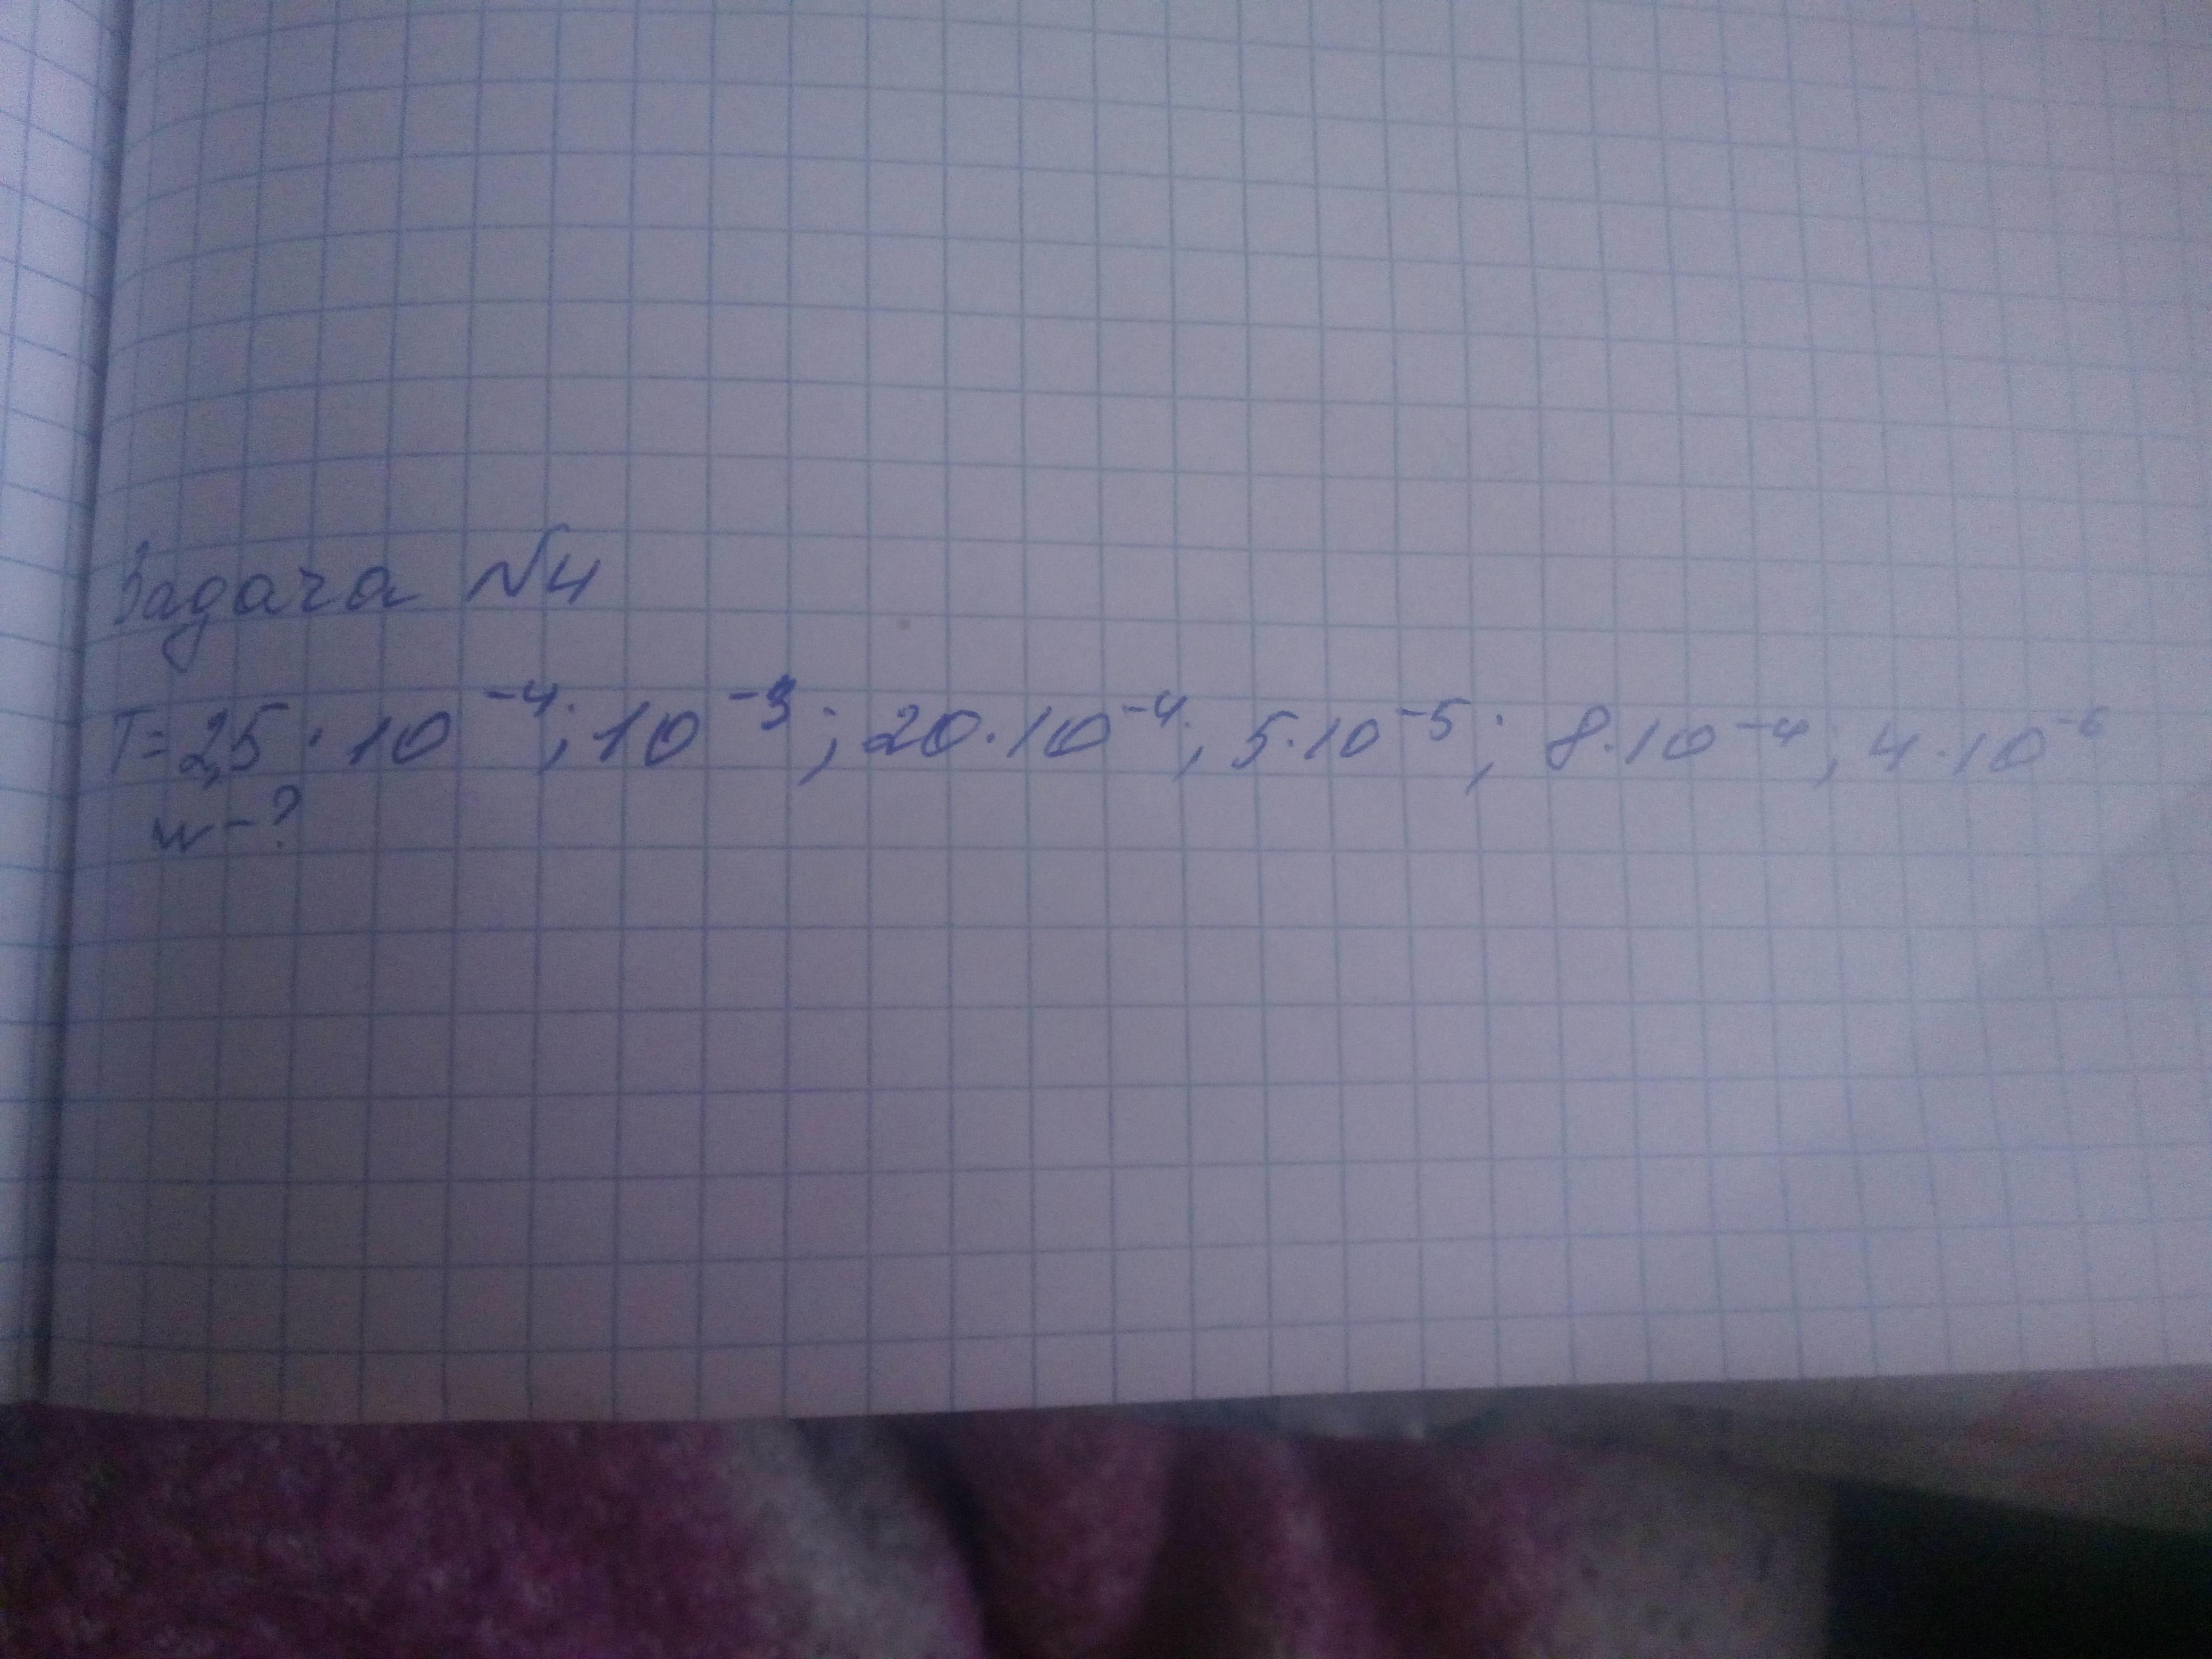 Задача №4
T=2,5·10⁻⁴; 10⁻³; 20·10⁻⁴; 5·10⁻⁵; 8·10⁻⁴; 4·10⁻⁶
w-?